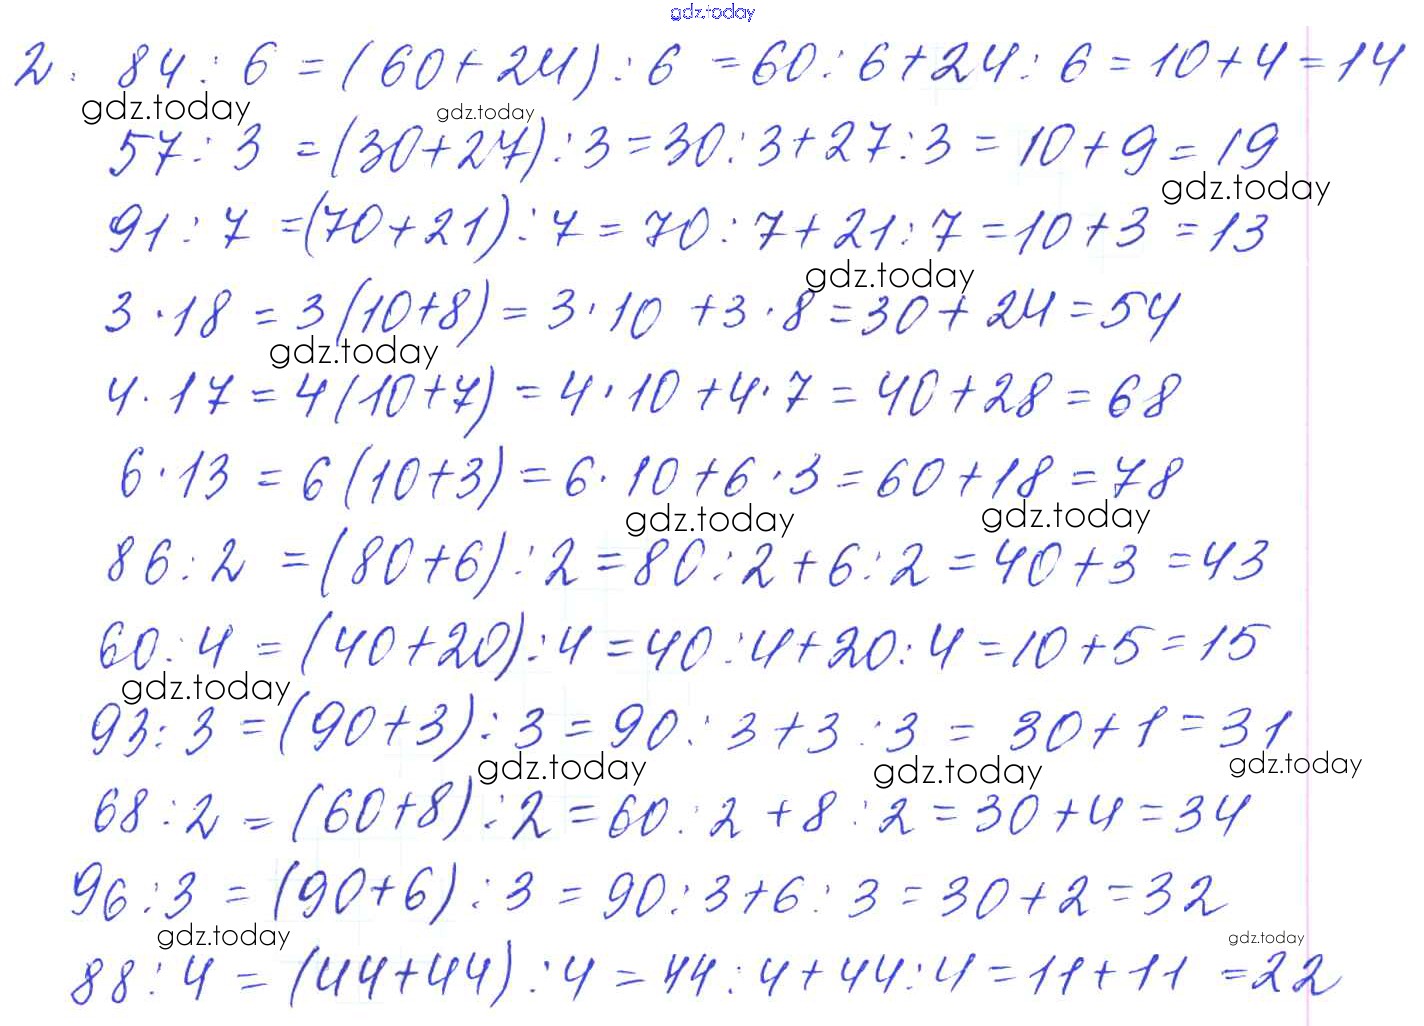 gdz.today
2. 84 : 6 = (60+24) : 6 = 60 : 6 + 24 : 6 = 10 + 4 = 14
gdz.today gdz.today
57 : 3 = (30+27) : 3 = 30 : 3 + 27 : 3 = 10 + 9 = 19
gdz.today
91 : 7 = (70+21) : 7 = 70 : 7 + 21 : 7 = 10 + 3 = 13
gdz.today
3 · 18 = 3 (10+8) = 3 · 10 + 3 · 8 = 30 + 24 = 54
gdz.today
4 · 17 = 4 (10+7) = 4 · 10 + 4 · 7 = 40 + 28 = 68
6 · 13 = 6 (10+3) = 6 · 10 + 6 · 3 = 60 + 18 = 78
gdz.today gdz.today
86 : 2 = (80+6) : 2 = 80 : 2 + 6 : 2 = 40 + 3 = 43
60 : 4 = (40+20) : 4 = 40 : 4 + 20 : 4 = 10 + 5 = 15
gdz.today
93 : 3 = (90+3) : 3 = 90 : 3 + 3 : 3 = 30 + 1 = 31
gdz.today gdz.today gdz.today
68 : 2 = (60+8) : 2 = 60 : 2 + 8 : 2 = 30 + 4 = 34
96 : 3 = (90+6) : 3 = 90 : 3 + 6 : 3 = 30 + 2 = 32
gdz.today gdz.today
88 : 4 = (44+44) : 4 = 44 : 4 + 44 : 4 = 11 + 11 = 22